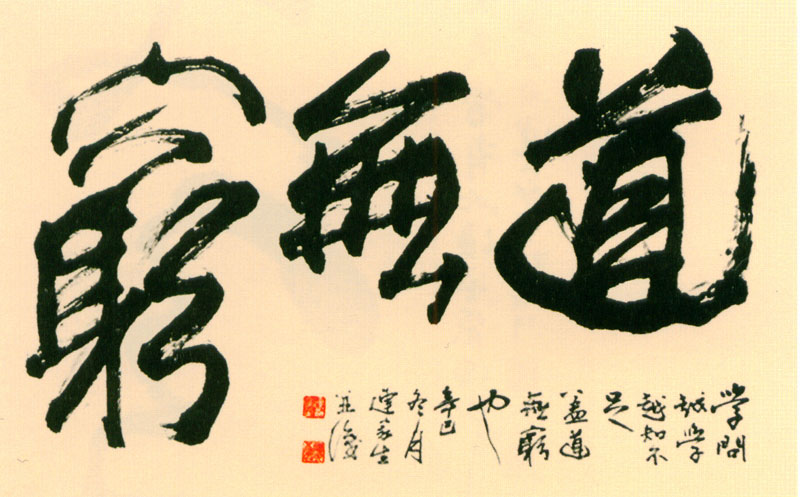 道無窮
學問
越學
越知不
足
蓋道
無窮
也
辛巳
冬月
連家生
並識